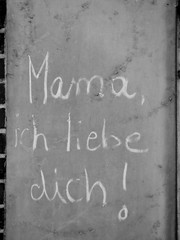 Mama,
ich liebe
dich!